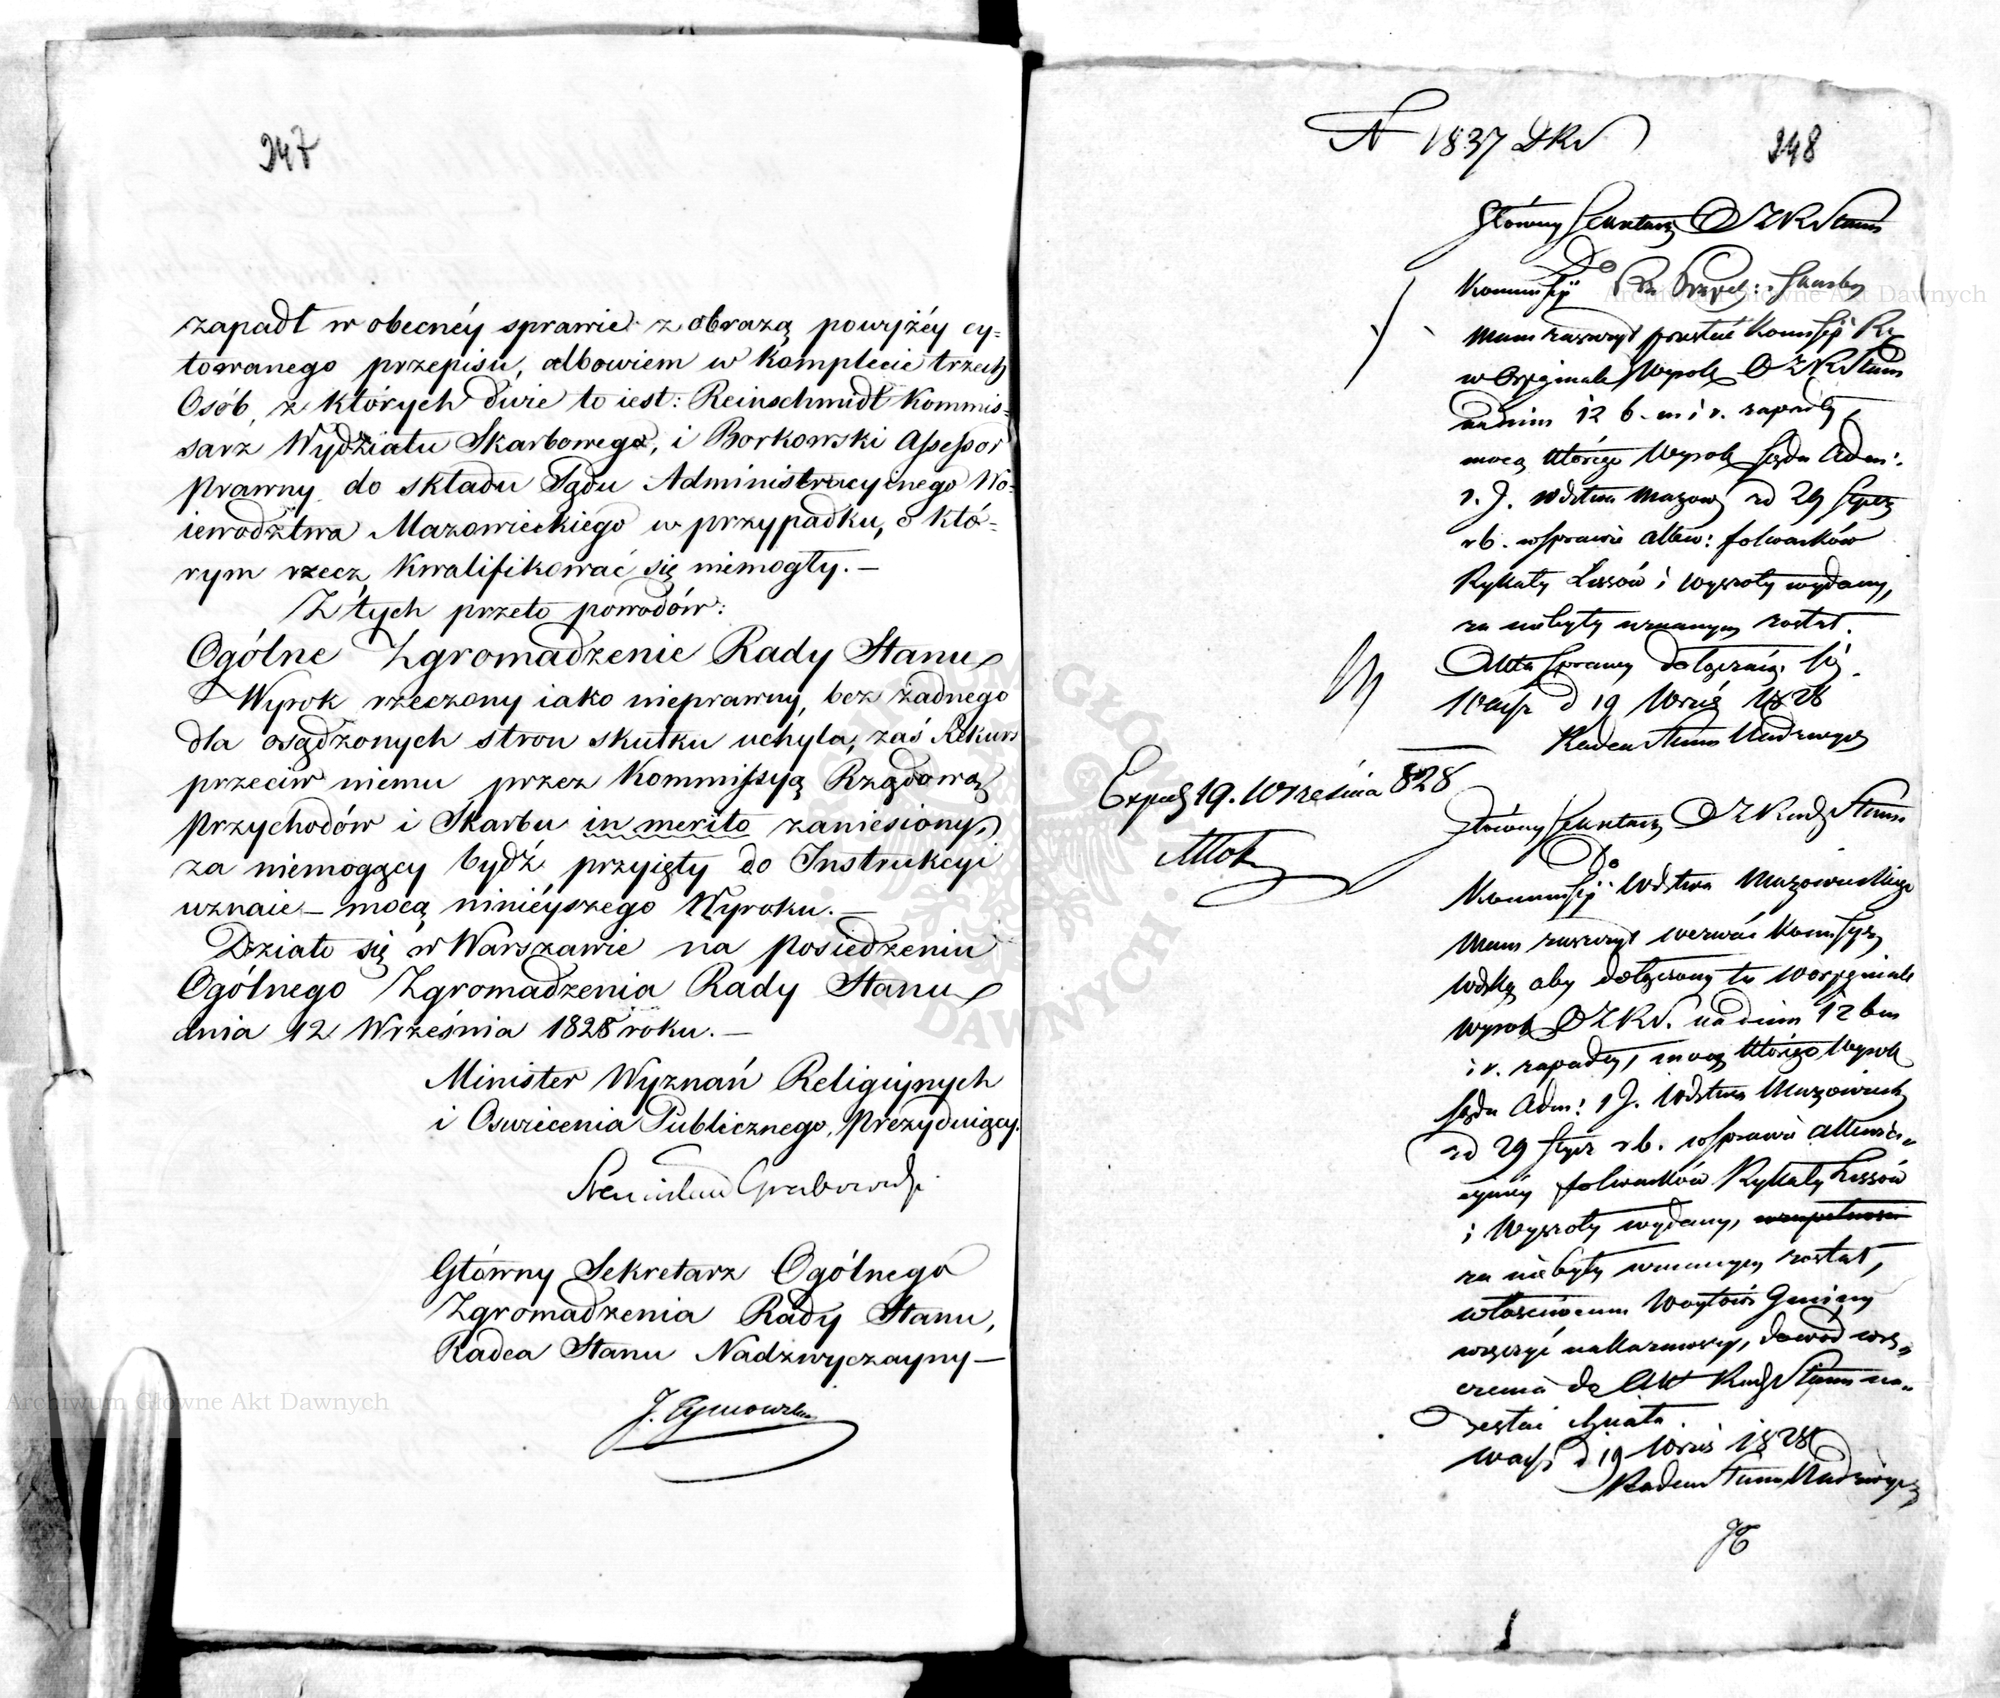 247
zapadł w obecnéy sprawie z obrazą powyżéy cy-
towanego przepisu, albowiem w komplecie trzech
Osób, z których dwie to iest: Reinschmidt Kommis-
sarz Wydziału Skarbowego, i Borkowski Assessor
Prawny do składu Sądu Administracyinego Wo-
iewodztwa Mazowieckiego w przypadku, o któ-
rym rzecz, kwalifikować się niemogły. —
Z tych przeto powodów:
Ogólne Zgromadzenie Rady Stanu
Wyrok rzeczony iako nieprawny, bez żadnego
dla osądzonych stron skutku uchyla, zaś Rekurs
przeciw niemu przez Kommissyą Rządową
Przychodów i Skarbu in merito zaniesiony,
za niemogący bydź przyięty do Instrukcyi
uznaie — mocą ninieyszego Wyroku. —
Działo się w Warszawie na posiedzeniu
Ogólnego Zgromadzenia Rady Stanu
dnia 12 Września 1828 roku. —
Minister Wyznań Religiynych
i Oswiecenia Publicznego, Prezyduiący.
Stanisław Grabowski
Główny Sekretarz Ogólnego
Zgromadzenia Rady Stanu,
Radca Stanu Nadzwyczayny —
J. Tymowski
N 1837 DRS
248
Główny Sekretarz OZRStanu
Do
Kommissyi Rz Przych: i Skarbu
Mam zaszczyt przesłać Kommissyi Rz
w Oryginale Wyrok OZRStanu
na dniu 12 b. m i r. zapadły
mocą którego Wyrok Sądu Adm:
1. J. Wdztwa Mazow: z d 29 Stycz
r b. w sprawie folwarków
Rykały Lissów i Wyszoły wydany,
za niebyły uznanym został.
Akta sprawy dołączaią się.
Warsz d 19 Wrześ 1828
Radca Stanu Nadzwycz
Exped 19. Września 828
Główny Sekretarz OZ Rady Stanu
Do
Kommissyi Wdztwa Mazowieckiego
Mam zaszczyt wezwać Kommissyą
Wdzką aby dołączony tu w oryginale
Wyrok OZRS. na dniu 12 b m
i r. zapadły, mocą którego Wyrok
Sądu Adm: 1 J. Wdztwa Mazowieck
z d 29 Stycz r b. w sprawie
folwarków Rykały Lissów
i Wyszoły wydany,
za niebyły uznanym został,
właściwemu Woytowi Gminy
wręczyć nakazawszy, dowód wrę-
czenia do Akt Rady Stanu na-
desłać chciała.
Warsz d 19 Wrześ 1828
Radca Stanu Nadzwycz
JT
Archiwum Główne Akt Dawnych
Archiwum Główne Akt Dawnych
ARCHIWUM GŁÓWNE AKT DAWNYCH